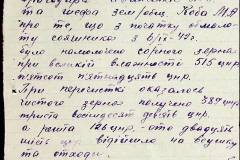 та шефа зем. розц. Коба М.Я
про те, що з початку вимолоту
соняшника з 6/IX-42 г.
було намолочено сорного зерна
при великій вложности 515 цнр.
пятсот пятнадцять цнр.
При перечистці оказалось
чистого зерна получено 389 цнр.
триста восимдесят девять цнр.
а решта 126 цнр. - сто двадцять
шість цнр. відійшло на всушку
та отходи.